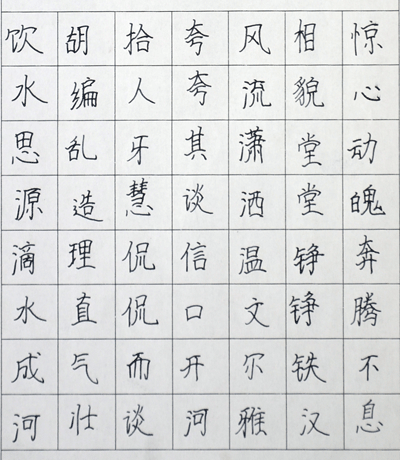 饮水思源滴水成河
胡编乱造理直气壮
拾人牙慧侃侃而谈
夸夸其谈信口开河
风流潇洒温文尔雅
相貌堂堂铮铮铁汉
惊心动魄奔腾不息